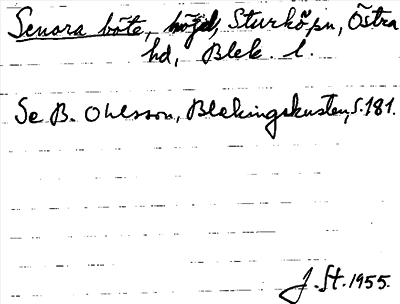 Senora böte, höjd, Sturkö sn, Östra
hd, Blek. l.
Se B. Ohlsson, Blekingekusten, s. 181.
J. St. 1955.